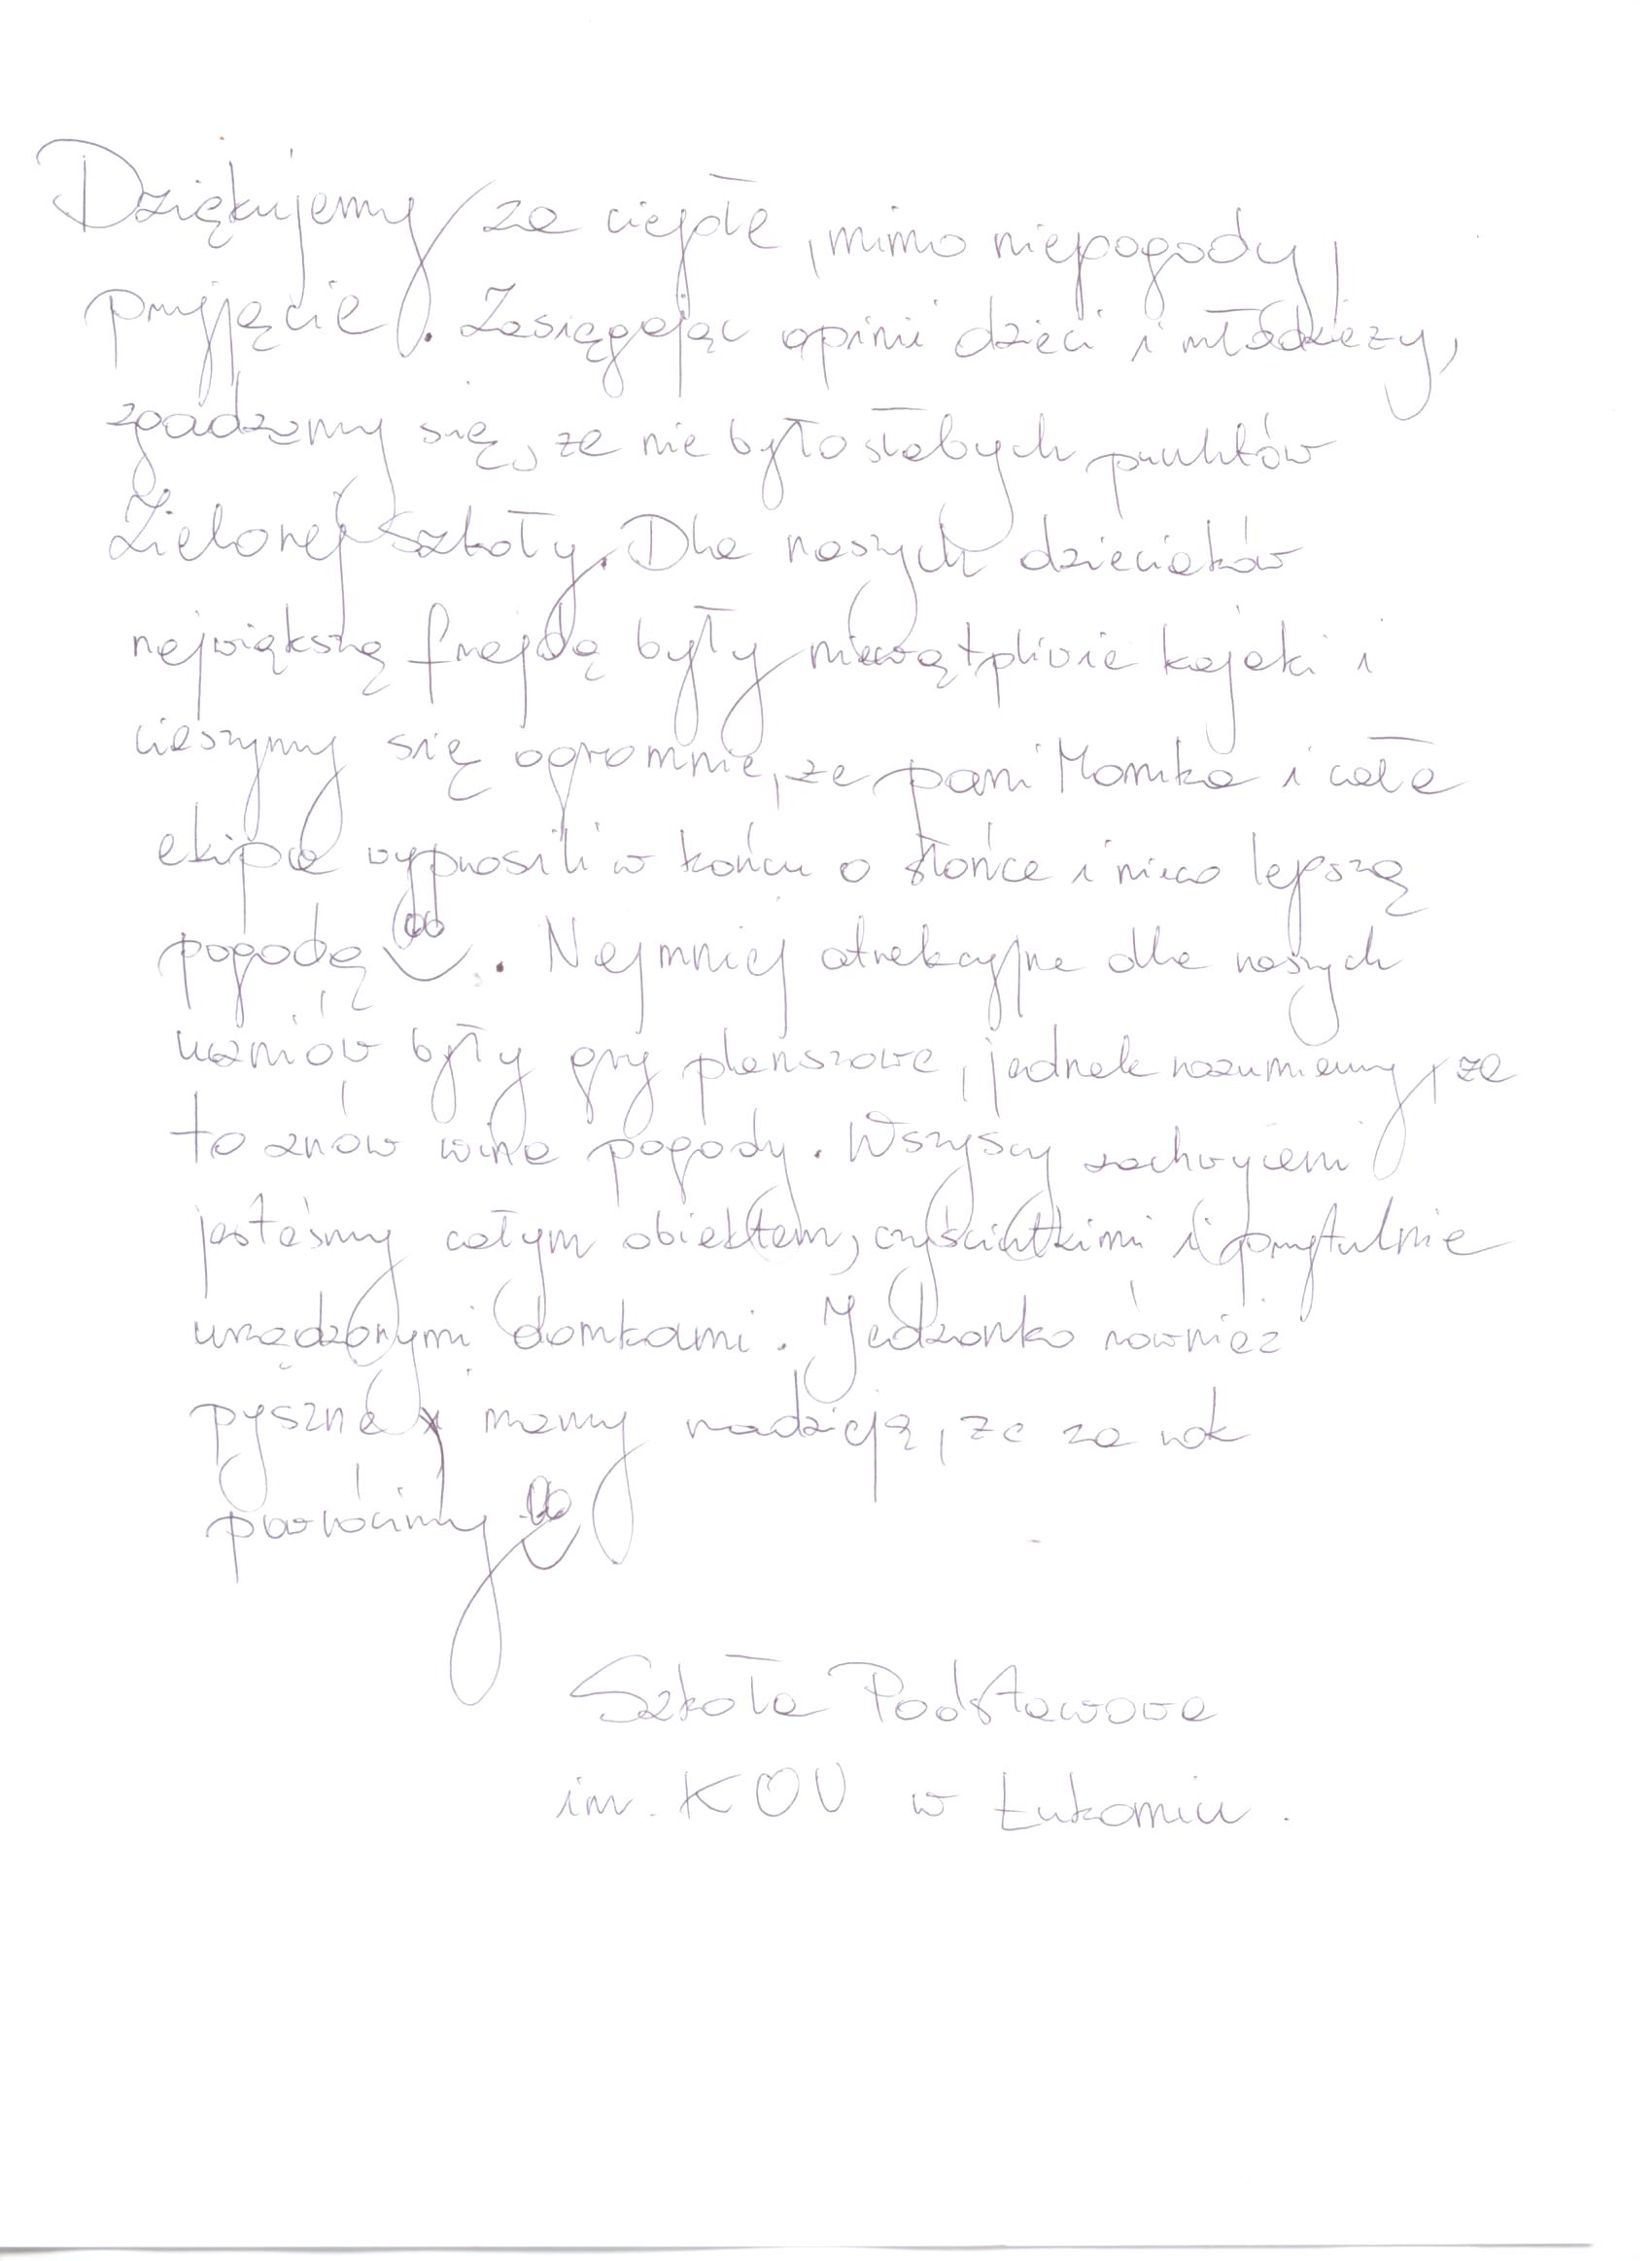 Dziękujemy za ciepłe, mimo niepogody,
przyjęcie. Zasięgając opinii dzieci i młodzieży,
zgadzamy się, że nie było słabych punktów
Zielonej Szkoły. Dla naszych dzieciaków
największą frajdą były niewątpliwie kajaki i
cieszymy się ogromnie, że pani Monika i cała
ekipa wyprosili w końcu o słońce i nieco lepszą
pogodę. Najmniej atrakcyjne dla naszych
uczniów były gry planszowe, jednak rozumiemy, że
to znów wina pogody. Wszyscy zachwyceni
jesteśmy całym obiektem, czyściutkimi i przytulnie
urządzonymi domkami. Jedzonko również
pyszne, mamy nadzieję, że za rok
powrócimy
Szkoła Podstawowa
im. KOU w Łukomiu.